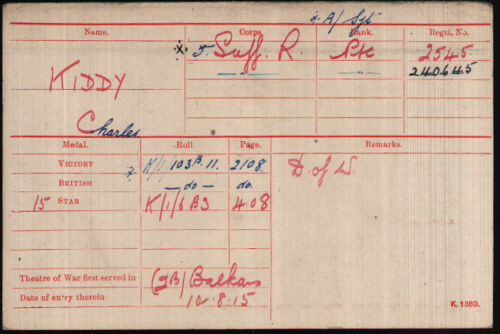 * A/Sjt
Name. Corps. Rank. Regtl. No.
* 5. Suff. R. Pte 2545
KIDDY — " — — " — 240645
Charles
Medal. Roll. Page. Remarks.
VICTORY * K/1/103B.11. 2108. D. of W.
BRITISH — do — do.
15 STAR K/1/6 B3 408
Theatre of War first served in (2B) Balkans
Date of entry therein 10.8.15
K. 1380.